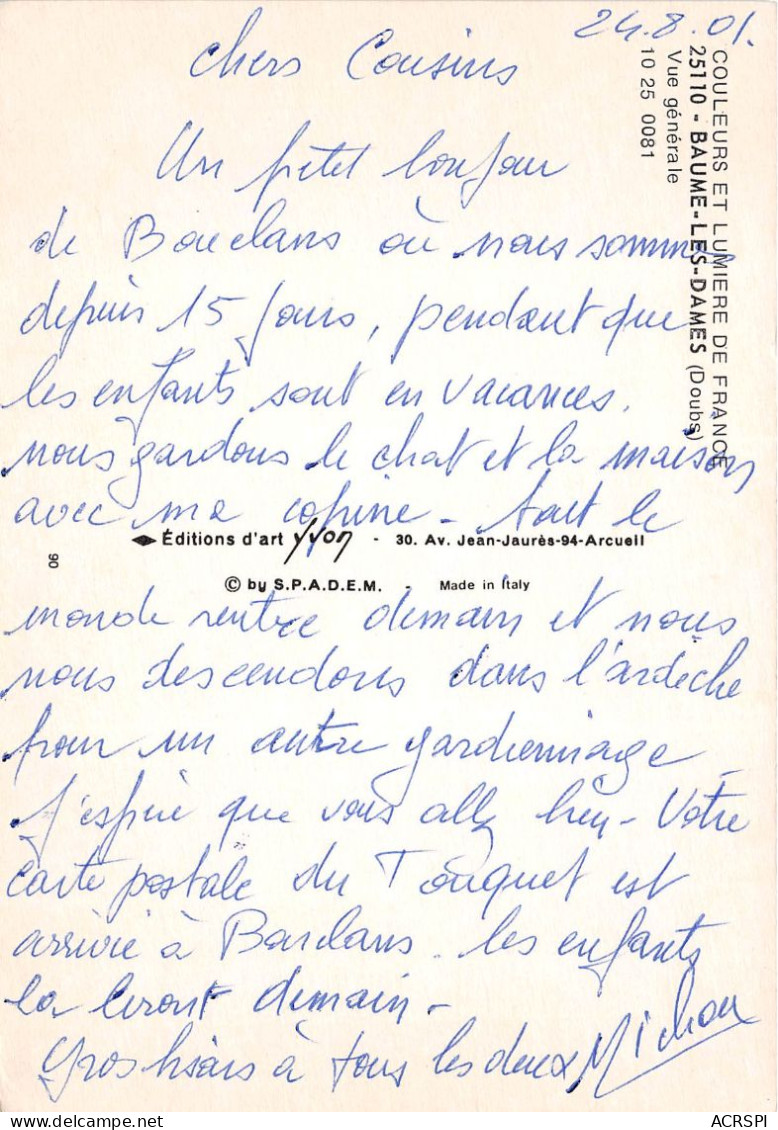 24.8.01.
Chers Cousins
Un petit bonjour
de Bouclans où nous sommes
depuis 15 jours, pendant que
les enfants sont en vacances.
nous gardons le chat et la maison
avec ma copine - tout le
monde rentre demain et nous
nous descendons dans l'ardèche
pour un autre gardiennage -
J'espère que vous allez bien - Votre
carte postale du Touquet est
arrivée à Bouclans. les enfants
la liront demain -
Gros bisous à tous les deux
COULEURS ET LUMIERE DE FRANCE
25110 - BAUME-LES-DAMES (Doubs)
Vue générale
10 25 0081
Éditions d'art Yvon - 30. Av. Jean-Jaurès-94-Arcueil
© by S.P.A.D.E.M. - Made in Italy
90
ACRSPI